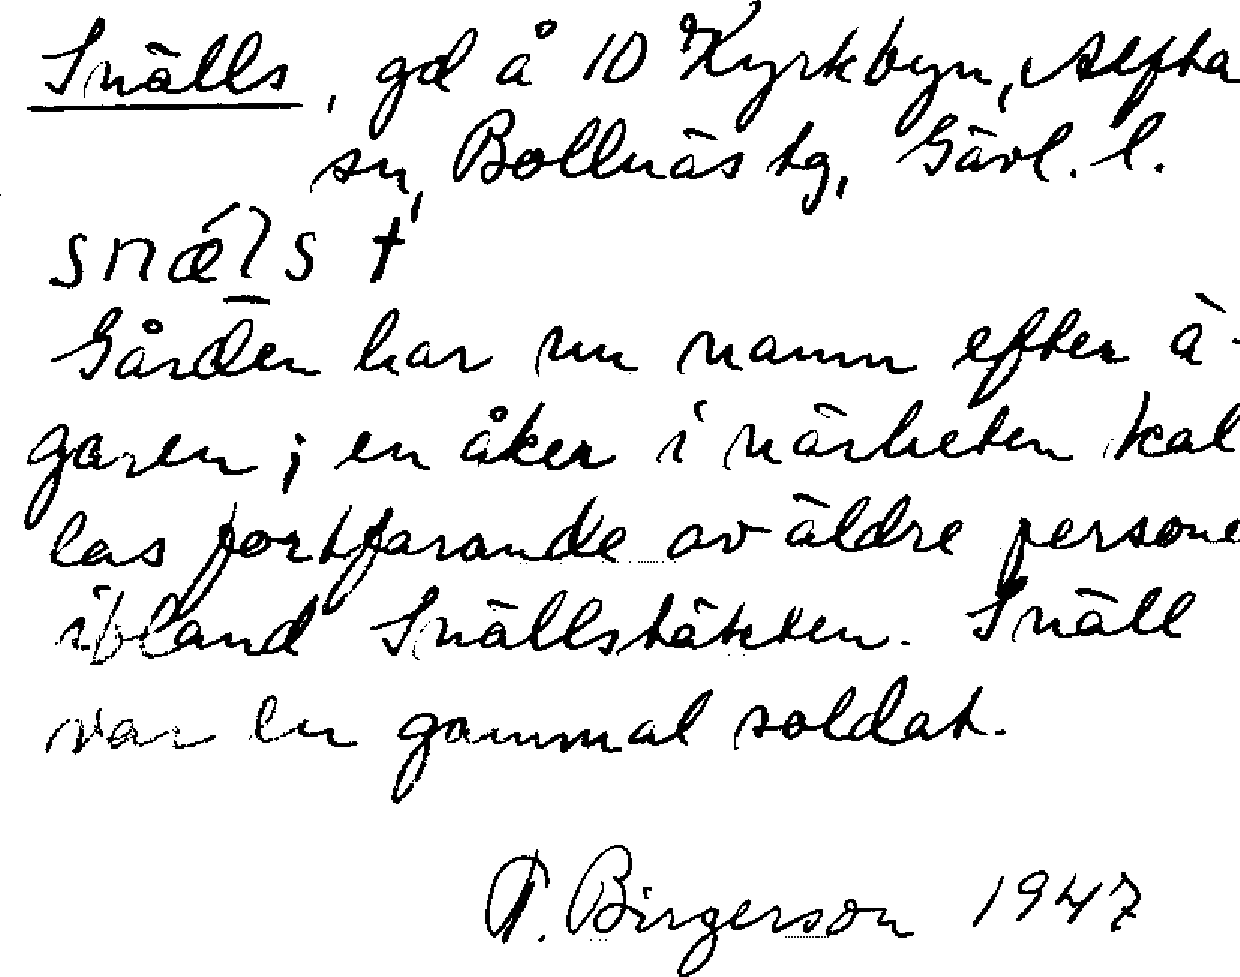 Snälls, gd å 10 Kyrkbyn, Alfta
sn, Bollnäs tg, Gävl. l.
snǽls †
Gården har nu namn efter ä-
garen; en åker i närheten kal
las fortfarande av äldre persone
ibland Snällstäkten. Snäll
var en gammal soldat.
T. Birgerson 1947